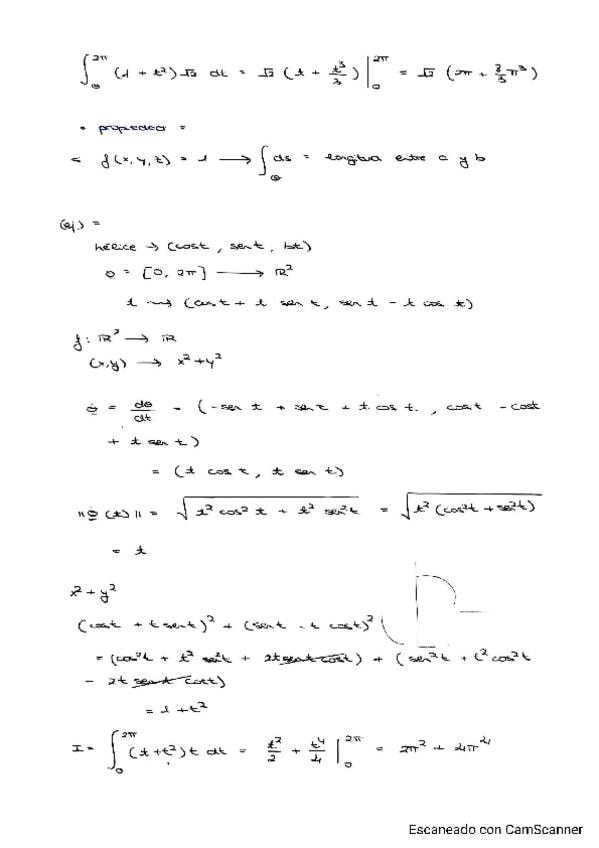 ∫_θ^2π (1 + t²)√2 dt = √2 (t + t³/3) |_0^2π = √2 (2π + 8/3 π³)
• propiedad =
= f(x,y,z) = 1 → ∫_θ ds = longitud entre a y b
(ej.) =
hélice → (cost, sent, bt)
θ = [0, 2π] → ℝ²
t ⟿ (cost + t sent, sent - t cos t)
f: ℝ² → ℝ
(x,y) → x²+y²
θ̇ = dθ/dt = (-sen t + sen t + t cos t, cost - cost
+ t sent)
= (t cos t, t sen t)
||θ̇(t)|| = √(t² cos² t + t² sen²t) = √(t² (cos²t + sen²t))
= t
x² + y²
(cost + t sent)² + (sent - t cost)²
= (cos²t + t² sen²t + 2t sent cost) + (sen²t + t² cos²t
- 2t sent cost)
= 1 + t²
I = ∫_0^2π (1+t²)t dt = t²/2 + t⁴/4 |_0^2π = 2π² + 4π⁴
Escaneado con CamScanner